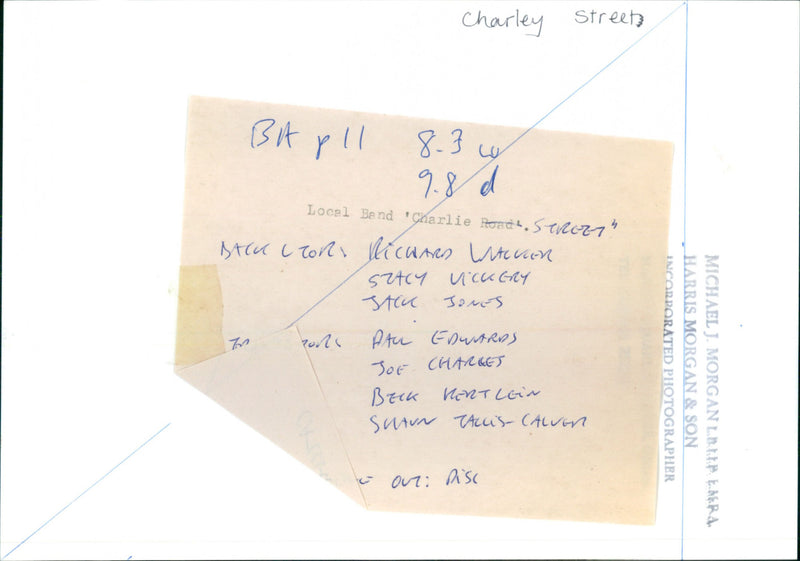 Charley Street
BA p 11 8.3 w
9.8 d
Local Band 'Charlie Road'. STREET"
BACK L TO R: RICHARD WALKER
STACY VICKERY
JACK JONES
TO R: PAUL EDWARDS
JOE CHARLES
BECK HERTLEIN
SHAUN TALLIS-CALVER
OUT: DISC
MICHAEL J. MORGAN
HARRIS MORGAN & SON
INCORPORATED PHOTOGRAPHER